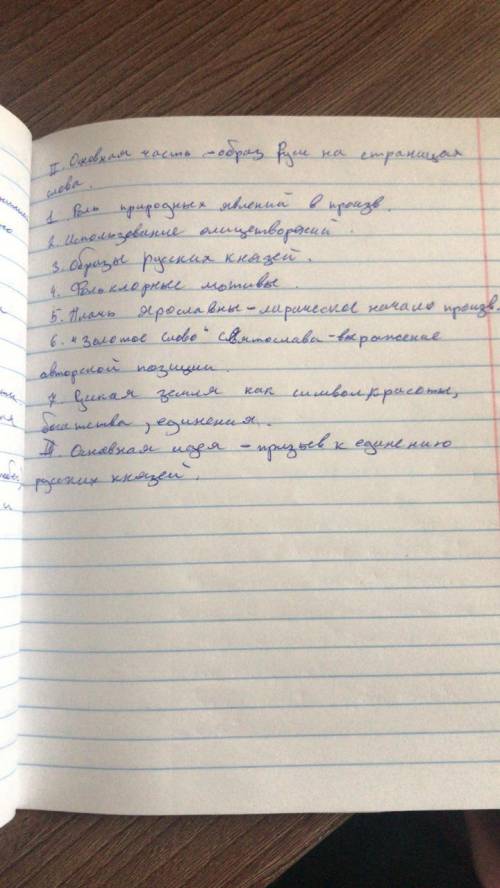 II. Основная часть – образ Руси на страницах
слова.
1. Роль природных явлений в произв.
2. Использование олицетворений.
3. Образы русских князей.
4. Фольклорные мотивы.
5. Плачь Ярославны – лирическое начало произв.
6. "Золотое слово" Святослава – выражение
авторской позиции.
7. Русская земля как символ красоты,
богатства, единения.
III. Основная идея – призыв к единению
русских князей.